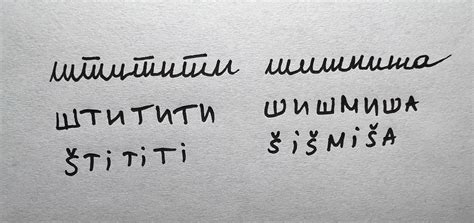 штитити шишмиша
ШТИТИТИ ШИШМИША
ŠTiTiTi ŠiŠMiŠA